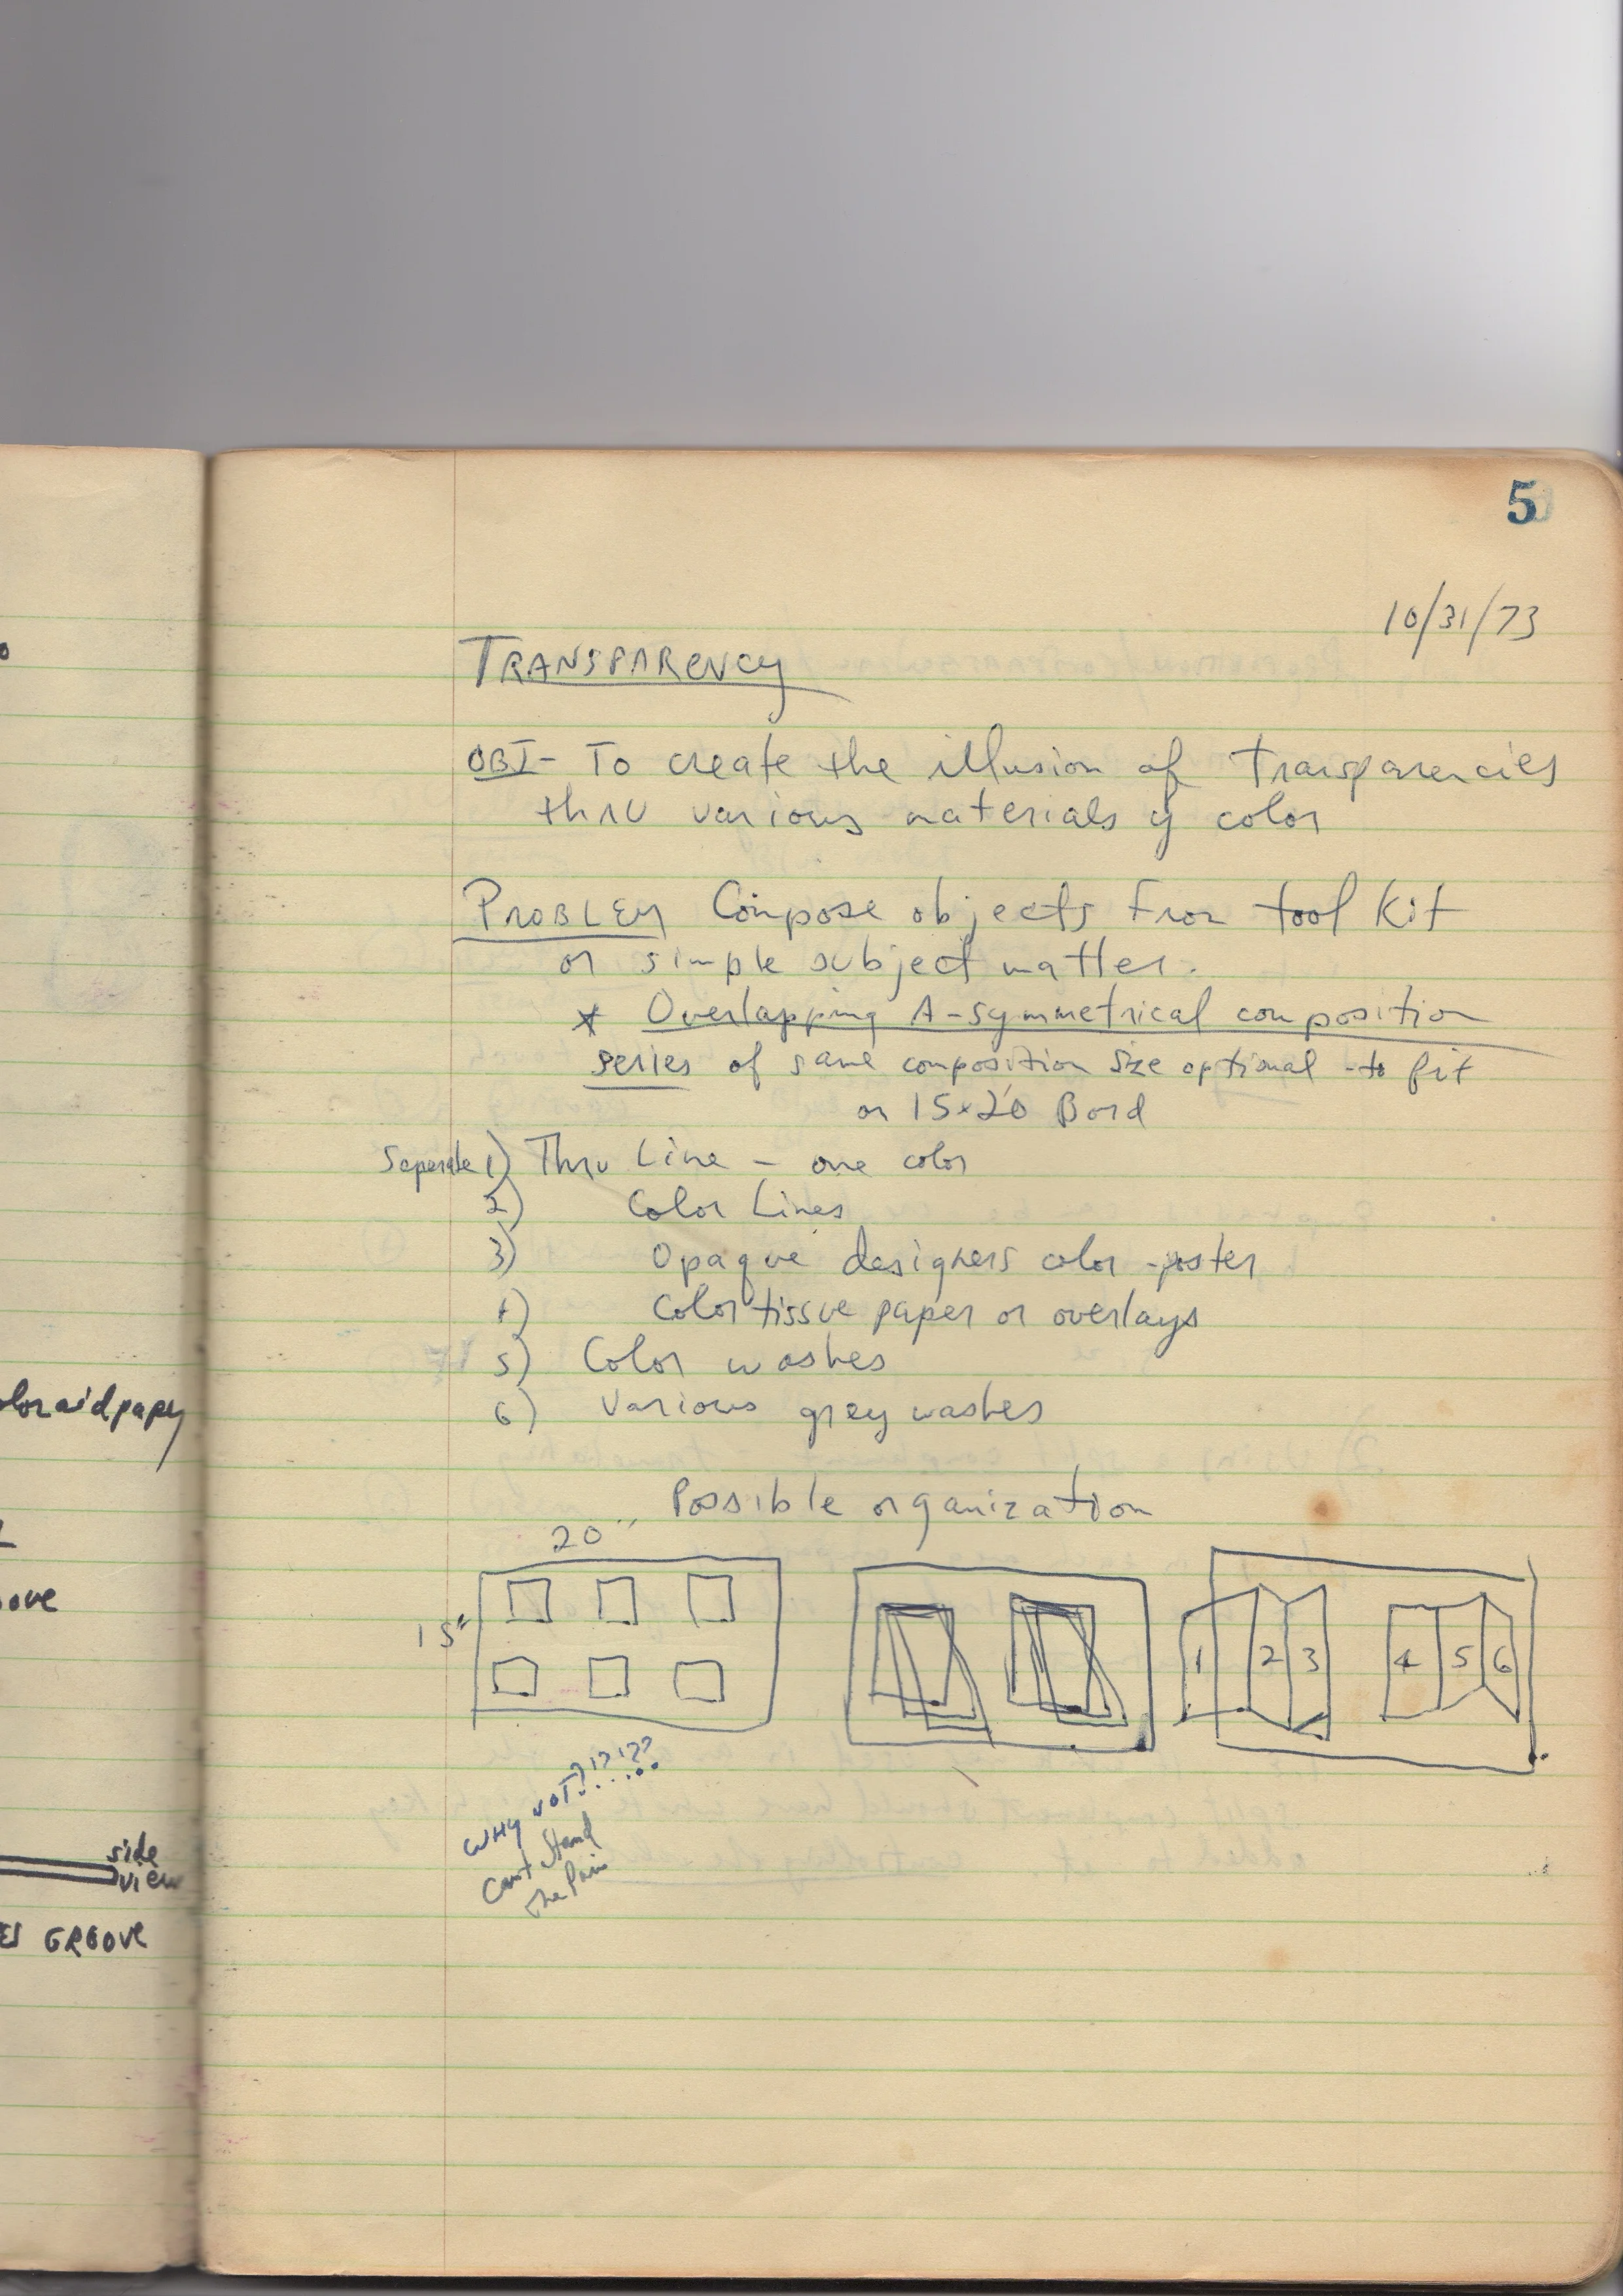 5
10/31/73
TRANSPARENCY
OBJ- To create the illusion of transparencies
thru various materials y color
PROBLEM Compose objects from tool kit
or simple subject matter.
* Overlapping A-symmetrical composition
series of same composition size optional - to fit
on 15x20 Bord
Seperate 1) Thru Line - one color
2) Color Lines
3) Opaque designers color - poster
4) Color tissue paper or overlays
5) Color washes
6) Various grey washes
Possible organization
20"
15"
1 2 3 4 5 6
WHY NOT?!?!??
Can't Stand
The Pain
oloraidpapy
ove
side
view
GROOVE